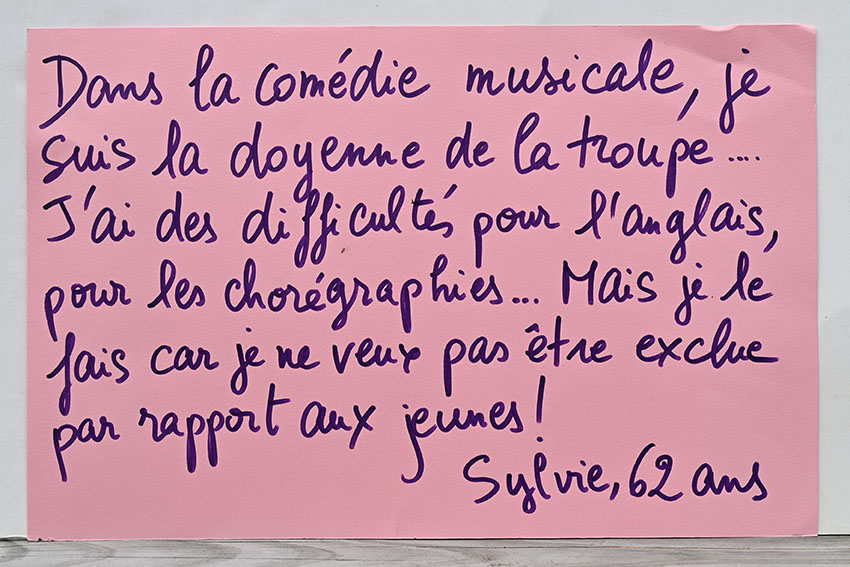 Dans la comédie musicale, je
suis la doyenne de la troupe ....
J'ai des difficultés pour l'anglais,
pour les chorégraphies... Mais je le
fais car je ne veux pas être exclue
par rapport aux jeunes !
Sylvie, 62 ans